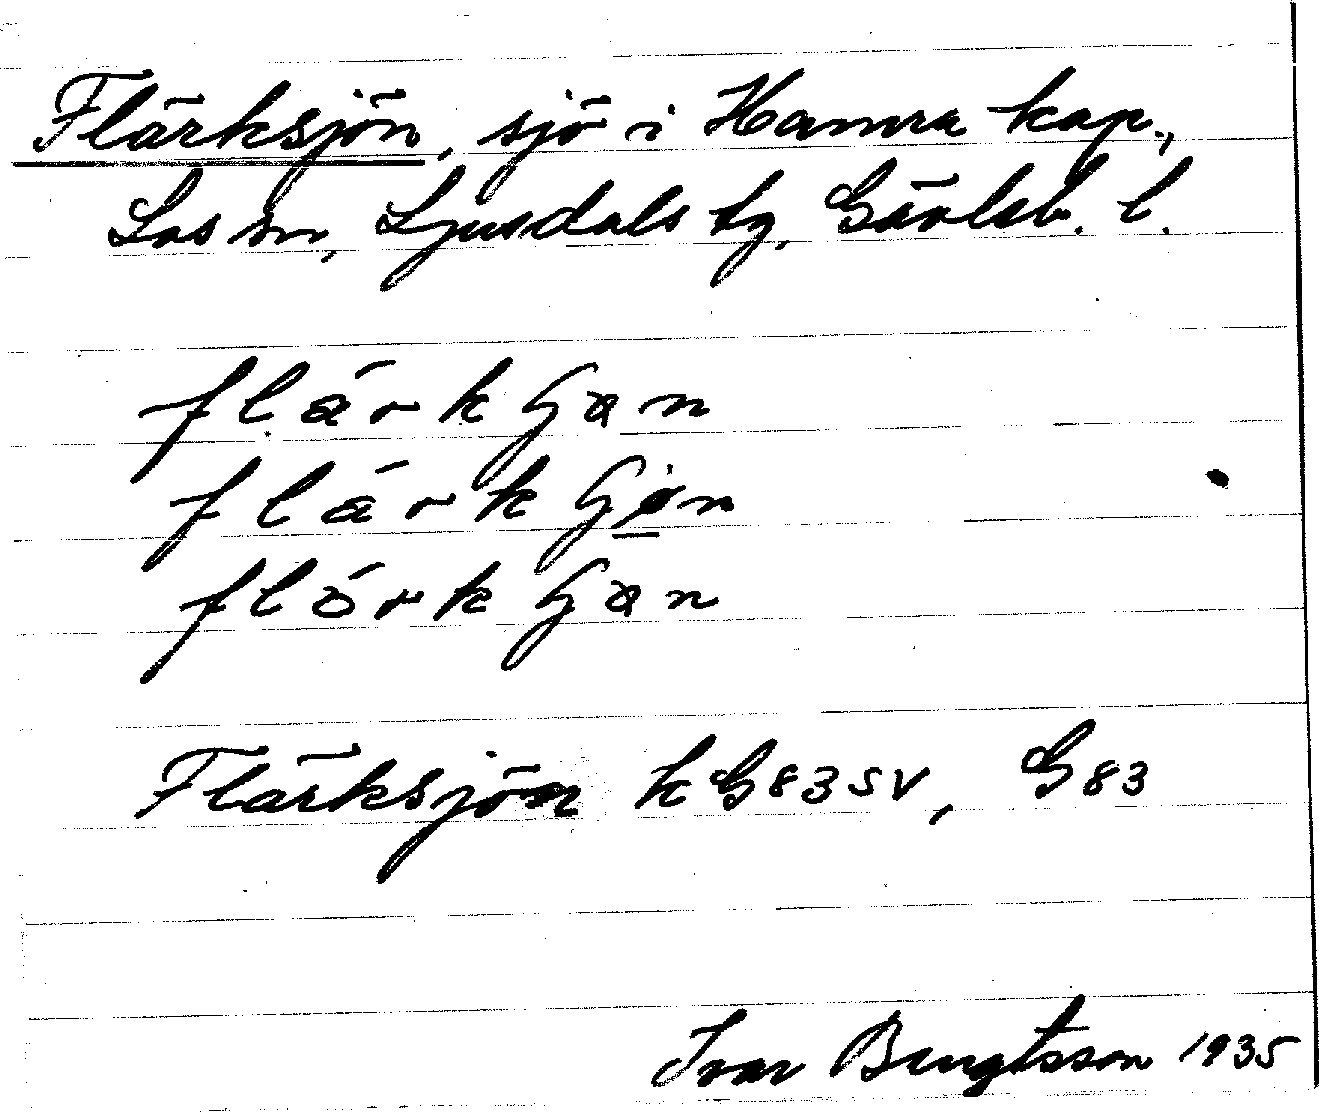 Flärksjön, sjö i Hamra kap.,
Los sn, Ljusdals tg, Gävleb. l.
flärkʃan
flärkʃøn
flörkʃan
Flärksjön kG83SV, G83
Ivar Bengtsson 1935